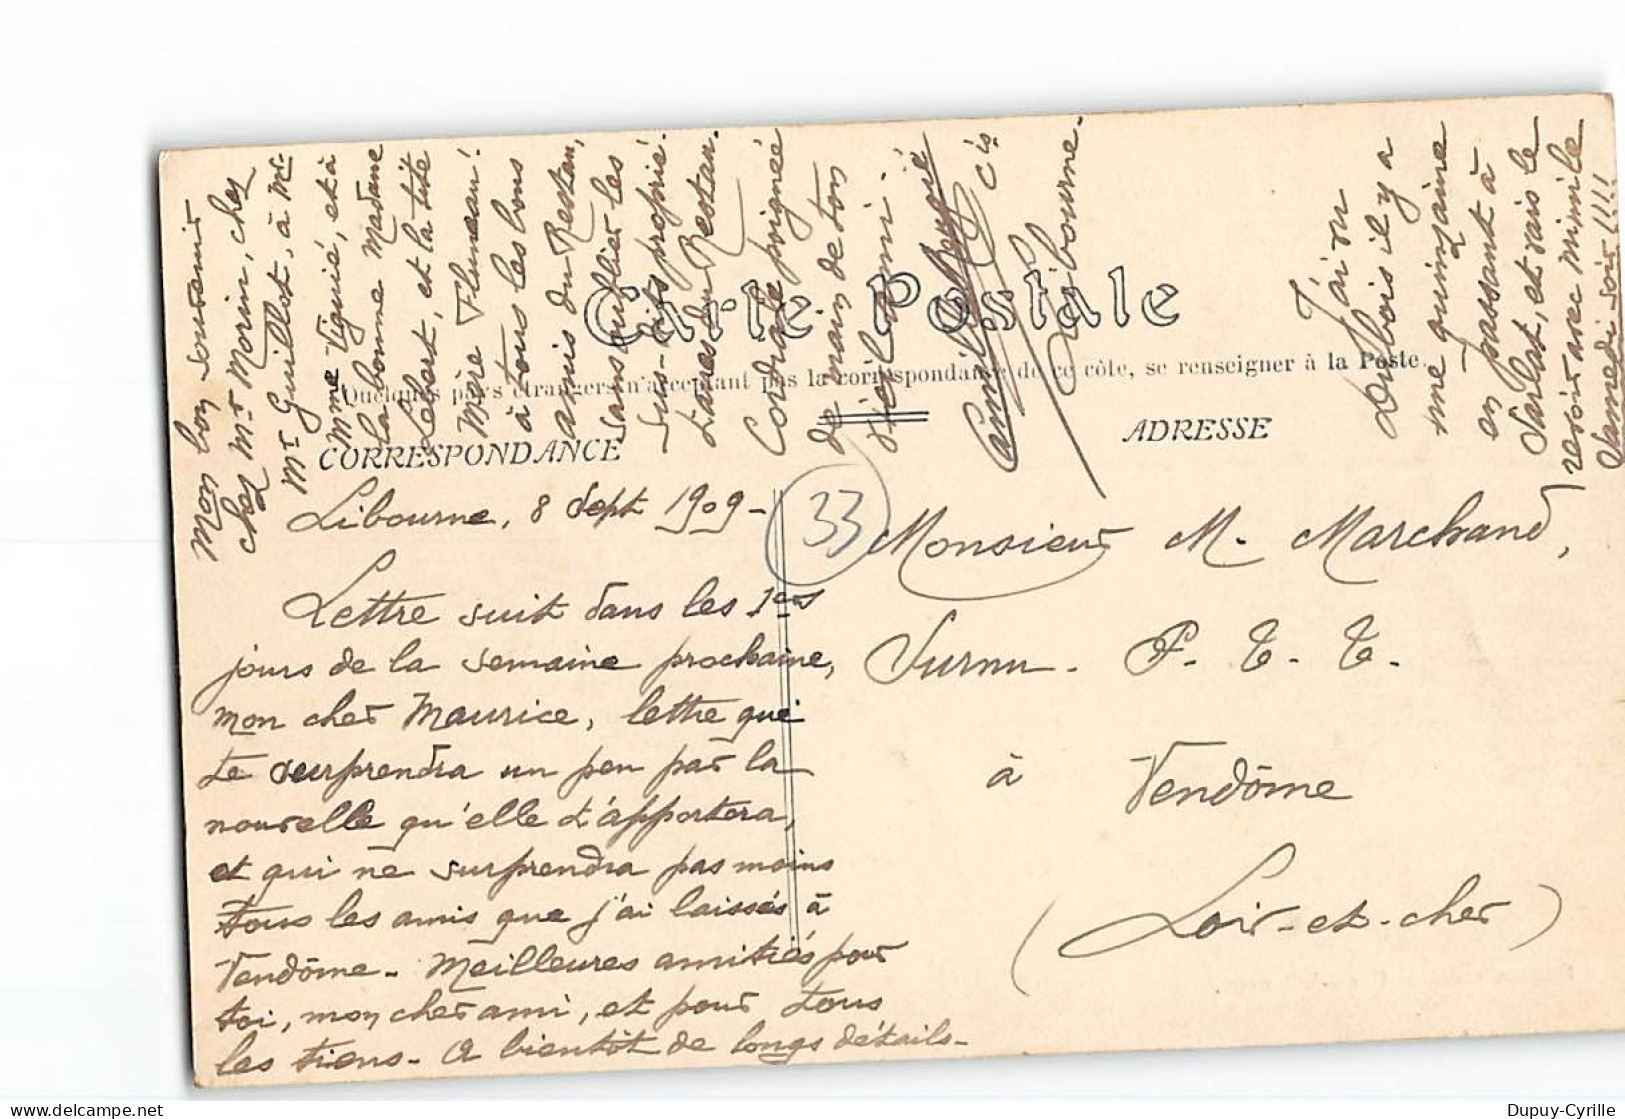 Carte Postale
Quelques pays étrangers n'acceptant pas la correspondance de ce côté, se renseigner à la Poste.
CORRESPONDANCE
ADRESSE
Libourne, 8 Sept 1909 -
Lettre suit dans les 1ers
jours de la semaine prochaine,
mon cher Maurice, lettre qui
te surprendra un peu par la
nouvelle qu'elle t'apportera,
et qui ne surprendra pas moins
tous les amis que j'ai laissés à
Vendôme - Meilleures amitiés pour
toi, mon cher ami, et pour tous
les tiens - A bientôt de longs détails -
33
Monsieur M. Marchand,
Surnu. P. T. T.
à Vendôme
(Loir-et-cher)
Mon bon souvenir
chez Mr Morin, chez
Mr Guillot, à Mr
Mme Viguié, et à
la bonne Madame
Lebert, et la tite
Mère Fluneau!
à tous les bons
amis du Restau,
sans oublier les
sus-dits proprié.
taires du Restau.
Cordiale poignée
de main de ton
vieil ami.
Camille
Cis
Libourne.
J'ai vu
Dubois il y a
une quinzaine
en passant à
Sarlat, et vais le
revoir avec Mimile
Samedi soir!!!!
Dupuy-Cyrille